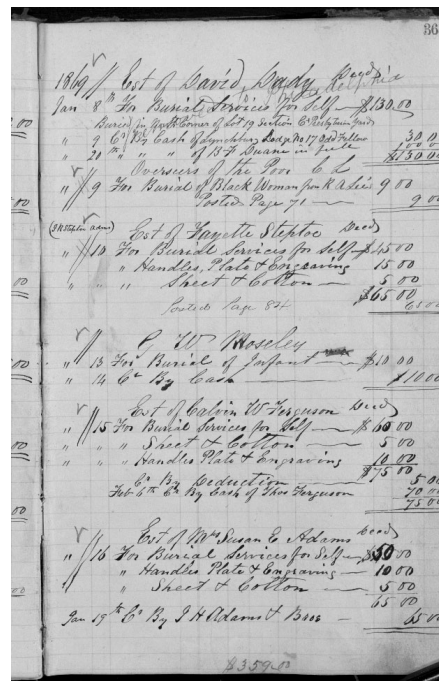 36
1869 // Est of David, Dady, Decd
Jan 8th For Burial Services for Self $130.00
Buried in North Corner of Lot 19 Section C Presbyterian yard
" 9 Cr By Cash of Lynchburg Lodge No 17 Odd Fellow 30.0
" 21st " " " of B F Duane in full 100 00
$130 00
Overseers of the Poor C L
" // 9 For Burial of Black Woman from K A Lee 9 00
Posted Page 71 9 00
Est of Fayette Steptoe Decd
" // 10 For Burial Services for Self $45 00
" " " Handles, Plate & Engraving 15 00
" " " Sheet & Cotton 5 00
$65 00
Posted Page 824 65 00
G W Moseley
" // 13 For Burial of Infant $10 00
" 14 Cr By Cash $10 00
Est of Calvin W Ferguson Decd
" // 15 For Burial Services for Self $60 00
" " " Sheet & Cotton 5 00
" " " Handles Plate & Engraving 10 00
$75 00
Cr By Deduction 5 00
Feb 6th Cr By Cash of Thos Ferguson 70 00
75 00
Est of Mrs Susan E Adams Decd
" // 16 For Burial Services for Self $50 00
" Handles Plate & Engraving 10 00
" Sheet & Cotton 5 00
65 00
Jan 19th Cr By I H Adams & Bros 65 00
$359.00